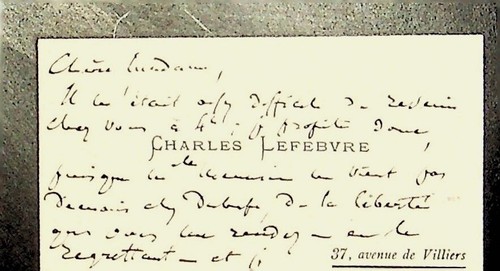 Chère Madame,
Il m'était assez difficile de revenir
chez vous à 4h ; je profite donc,
CHARLES LEFEBVRE
puisque le de ne vient pas
chez de la liberté
que vous me rendez – en le
regrettant – et je
37, avenue de Villiers